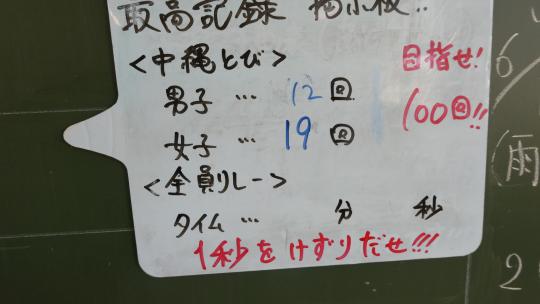 最高記録 掲示板!!
<中縄とび> 目指せ!
男子 … 12回 100回!!
女子 … 19回
<全員リレー>
タイム… 分 秒
1秒をけずりだせ!!!
6/
(雨
2